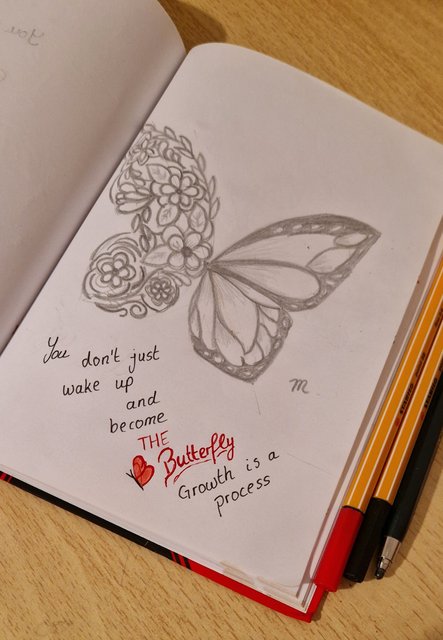 You don't just
wake up
and
become
THE
Butterfly
Growth is a
process
m